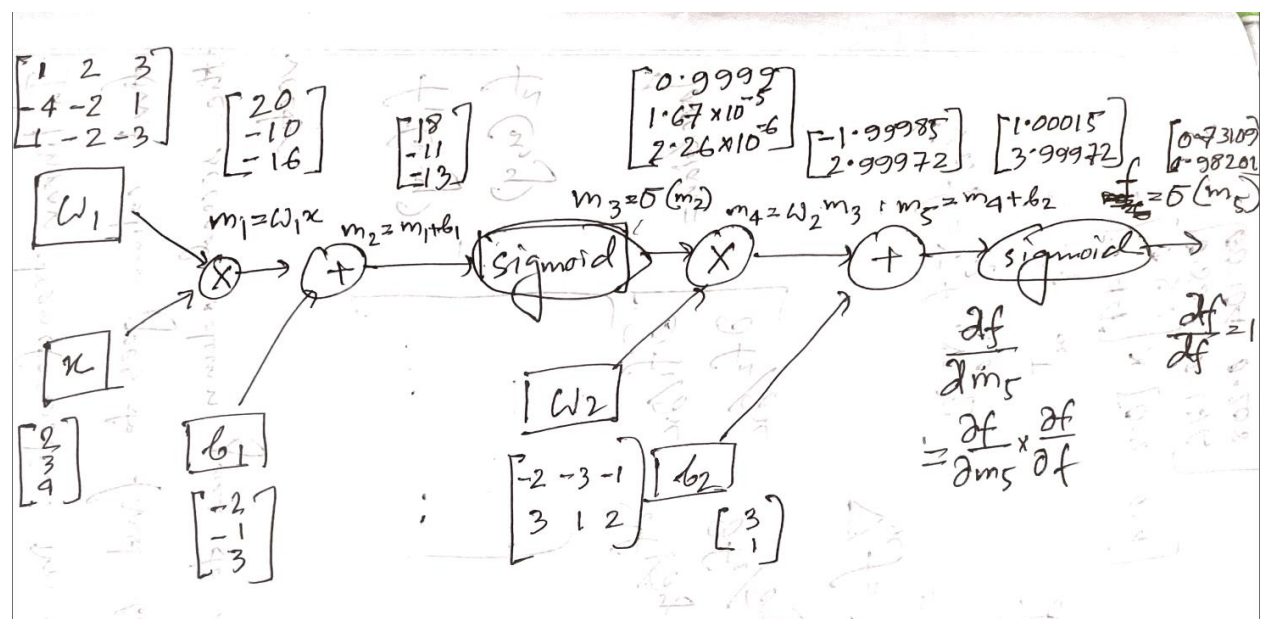 [1 2 3]
[-4 -2 1]
[1 -2 -3]
[20]
[-10]
[-16]
[18]
[-11]
[-13]
[0.9999]
[1.67 × 10⁻⁵]
[2.26 × 10⁻⁶]
[-1.99985]
[2.99972]
[1.00015]
[3.99972]
[0.73109]
[0.98201]
ω₁
m₁ = ω₁x
m₂ = m₁+b₁
m₃ = σ(m₂)
m₄ = ω₂m₃
m₅ = m₄+b₂
f = σ(m₅)
×
+
sigmoid
×
+
sigmoid
x
[2]
[3]
[4]
b₁
[-2]
[-1]
[3]
ω₂
[-2 -3 -1]
[3 1 2]
b₂
[3]
[1]
∂f/∂m₅
= ∂f/∂m₅ × ∂f/∂f
∂f/∂f = 1